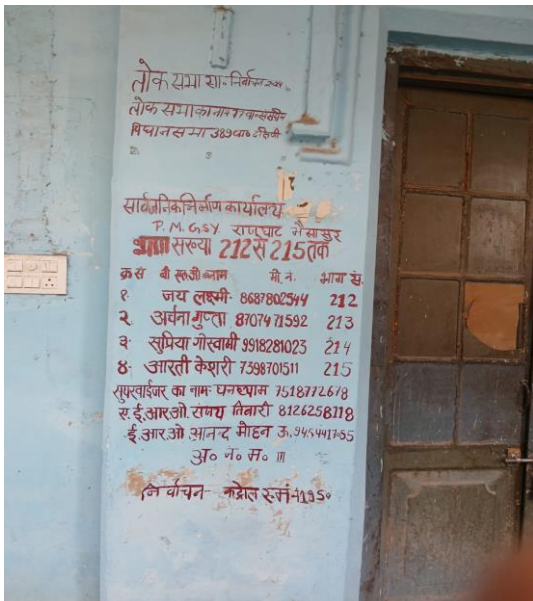 लोक सभा सा॰ निर्वाचन
लोक सभा का नाम 77 वाराणसी
विधान सभा 389 वा॰ दक्षिणी
सार्वजनिक निर्माण कार्यालय
P.M.G.S.Y. राजघाट भैसासुर
संख्या 212 से 215 तक
क्र सं बी एल ओ नाम मो. नं. भाग सं.
१. जय लक्ष्मी 8687802544 212
२. अर्चना गुप्ता 8707471592 213
३. सुप्रिया गोस्वामी 9918281023 214
४. आरती केशरी 7398701511 215
सुपरवाईजर का नाम घनश्याम 7518772678
ए.ई.आर.ओ. संजय तिवारी 8126258118
ई.आर.ओ आनन्द मोहन उ.
अ॰ न॰ म॰ III
निर्वाचन कंट्रोल रूम 1950